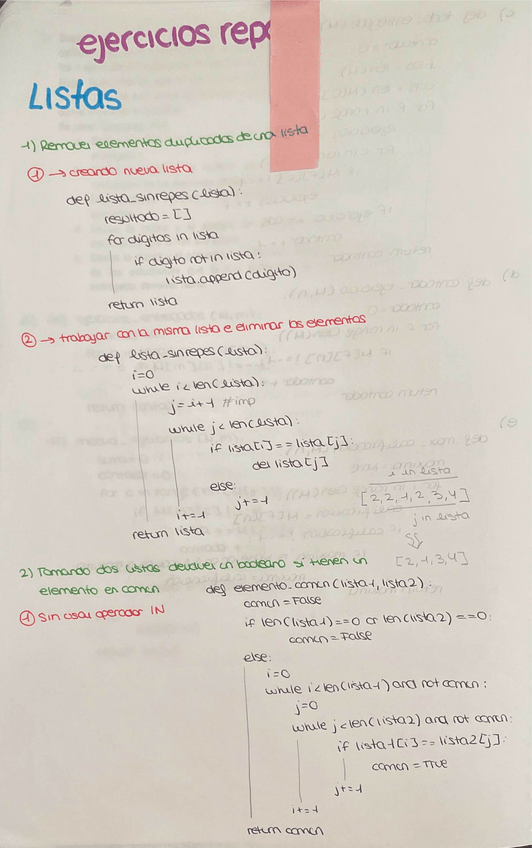 ejercicios rep
Listas
1) Remover elementos duplicados de una lista
① → creando nueva lista
def lista_sinrepes (lista):
resultado = []
for digitos in lista
if digito not in lista:
lista.append(digito)
return lista
② → trabajar con la misma lista e eliminar los elementos
def lista_sinrepes (lista):
i=0
while i<len(lista):
j=i+1 #imp
while j<len(lista):
if lista[i]==lista[j]:
del lista[j]
else:
j+=1
i+=1
return lista
i in lista
[2,2,1,2,3,4]
j in lista
[2,1,3,4]
2) Tomando dos listas devolver un booleano si tienen un
elemento en comun
① Sin usar operador IN
def elemento_comun (lista1, lista2):
comun = False
if len(lista1)==0 or len(lista2)==0:
comun = False
else:
i=0
while i<len(lista1) and not comun:
j=0
while j<len(lista2) and not comun:
if lista1[i]==lista2[j]:
comun = True
j+=1
i+=1
return comun